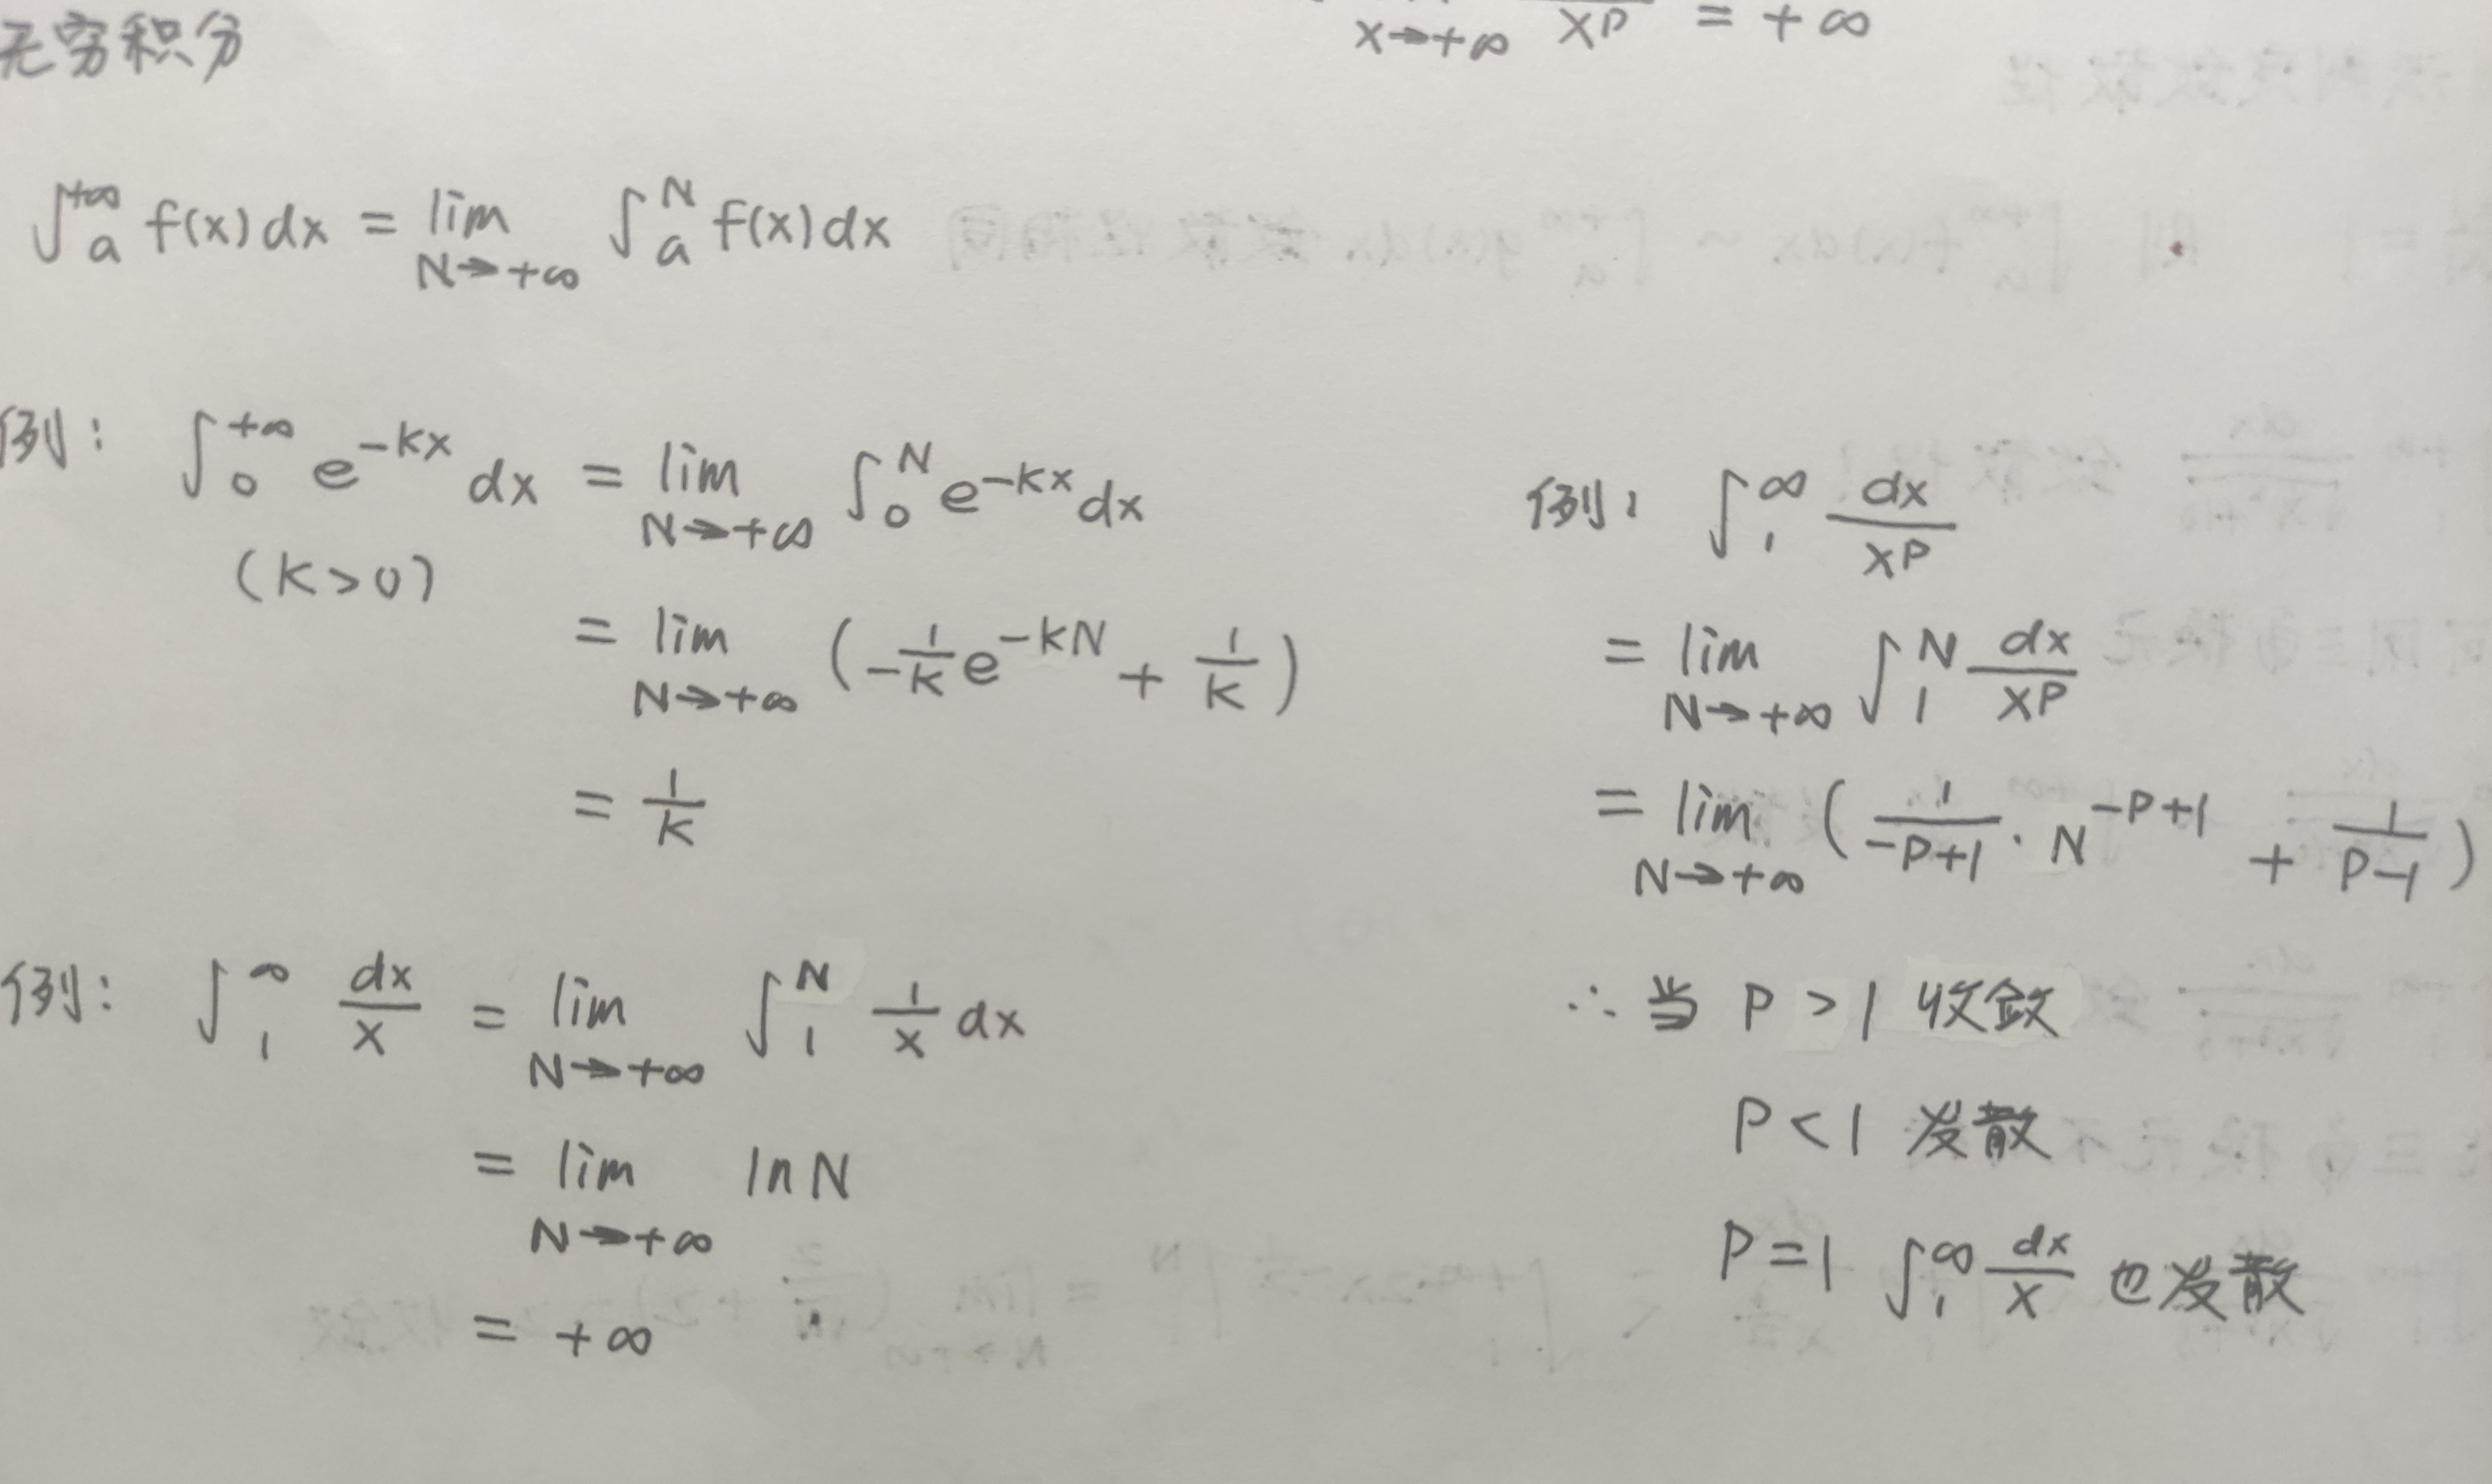 无穷积分
x→+∞ x^p = +∞
∫_a^{+∞} f(x)dx = lim_{N→+∞} ∫_a^N f(x)dx
例: ∫_0^{+∞} e^{-kx} dx = lim_{N→+∞} ∫_0^N e^{-kx} dx
(k>0)
= lim_{N→+∞} (-\frac{1}{k} e^{-kN} + \frac{1}{k})
= \frac{1}{k}
例: ∫_1^∞ \frac{dx}{x} = lim_{N→+∞} ∫_1^N \frac{1}{x} dx
= lim_{N→+∞} ln N
= +∞
例: ∫_1^∞ \frac{dx}{x^p}
= lim_{N→+∞} ∫_1^N \frac{dx}{x^p}
= lim_{N→+∞} (\frac{1}{-p+1} · N^{-p+1} + \frac{1}{p-1})
∴ 当 P > 1 收敛
P < 1 发散
P = 1 ∫_1^∞ \frac{dx}{x} 也发散